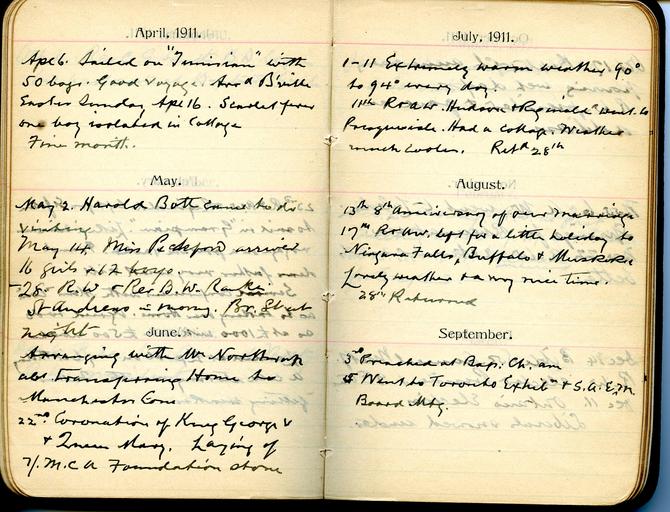 April, 1911.
Apl 6. Sailed on "Tunisian" with
50 boys. Good voyage. Arr'd B'ville
Easter Sunday Apl 16. Scarlet fever
one boy isolated in Cottage
Fine month.
May.
May 2. Harold Bott came to do
visiting
May 14. Miss Peckford arrived
16 girls + 12 boys
28 R.W. + Rev B.W.
St Andrews morng. Br. St at
night
June.
Arranging with Mr Northrop
abt Transferring Home to
Manchester Corn
22nd Coronation of King George V
+ Queen Mary. Laying of
Y.M.C.A Foundation stone
July, 1911.
1-11 Extremely warm weather 90°
to 94° every day.
11th R & A.W. Hudson + Reginald went to
Presquisle. Had a cottage. Weather
much cooler. Retd 28th
August.
13th 8th anniversary of our marriage
17th R & A.W. left for a little holiday to
Niagara Falls, Buffalo & Muskoka
Lovely weather & a very nice time.
28th Returned
September.
3rd Preached at Bap. Ch. am
5 Went to Toronto Exhibn & S.A.
Board Mtg.